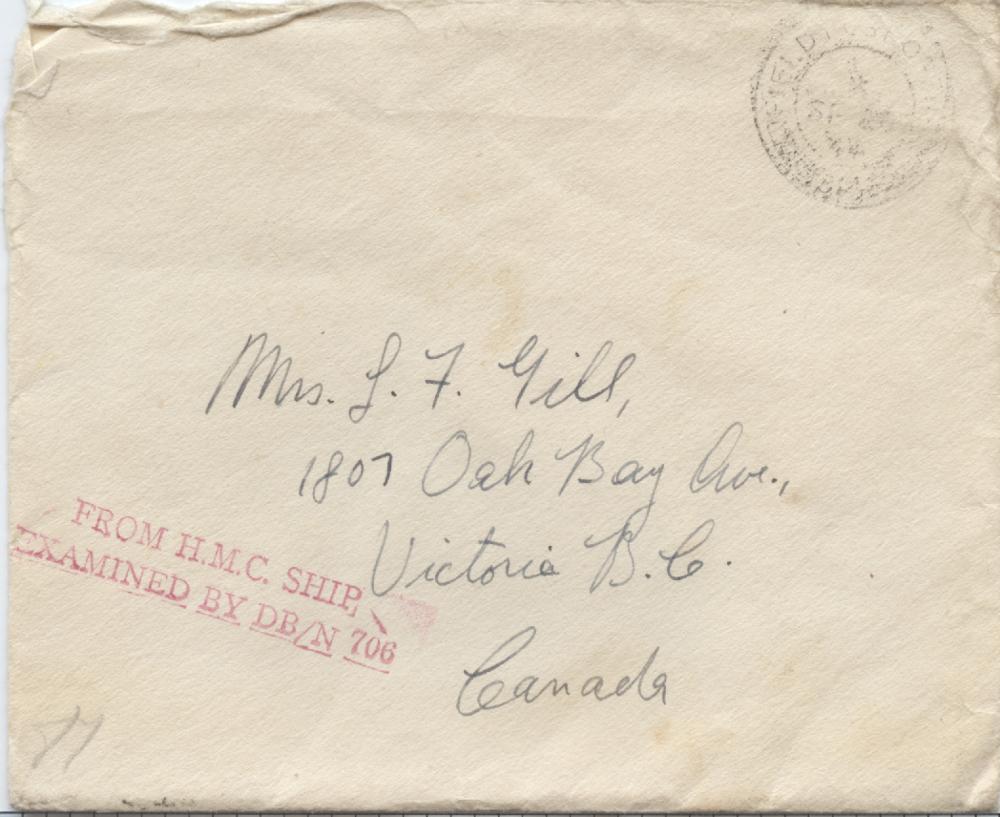 FIELD POST OFFICE
4
44
Mrs. L. F. Gill,
1807 Oak Bay Ave.,
Victoria B.C.
Canada
FROM H.M.C. SHIP,
EXAMINED BY DB/N 706